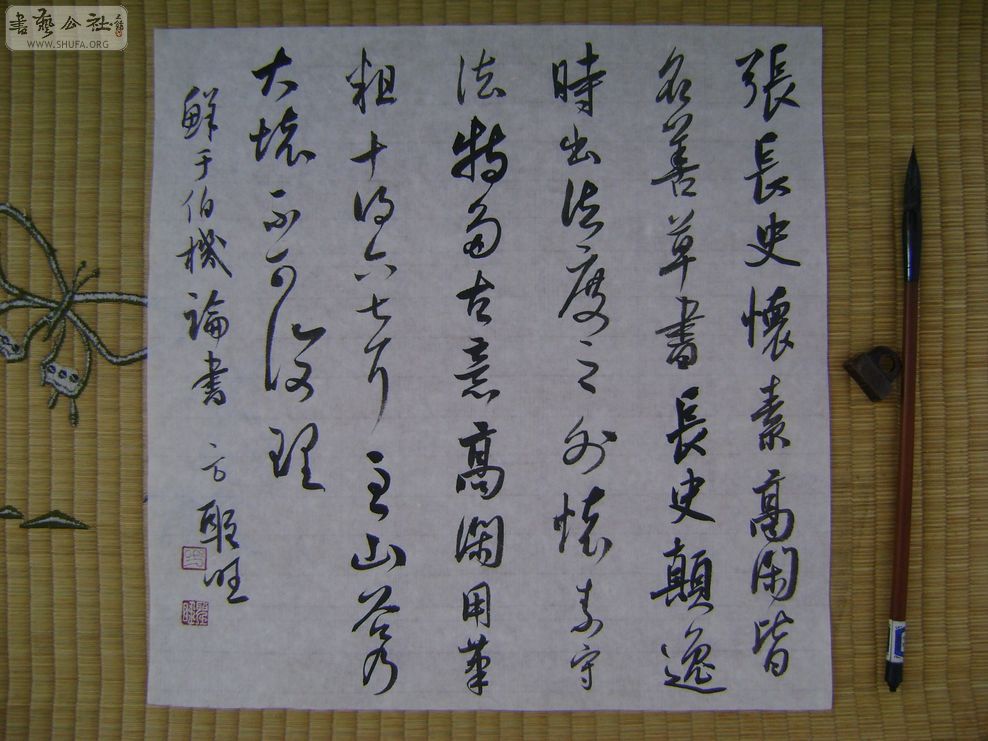 書藝公社
WWW.SHUFA.ORG
張長史懷素高閑皆
名善草書長史顛逸
時出法度之外懷素守
法特多古意高閑用筆
粗十得六七耳至山谷乃
大壞不可復理
鮮于伯機論書 方